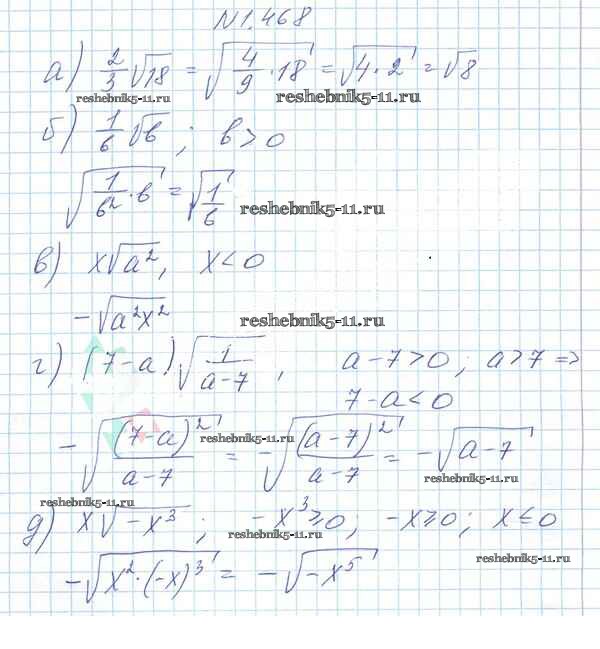 N1.468
а) 2/3 √18 = √(4/9 · 18) = √(4 · 2) = √8
reshebnik5-11.ru reshebnik5-11.ru
б) 1/в √в ; в > 0
√(1/в² · в) = √(1/в) reshebnik5-11.ru
в) x√a², x < 0
-√(a²x²) reshebnik5-11.ru
г) (7-a)√(1/(a-7)), a-7>0; a>7 =>
7-a<0
-√((7-a)²/(a-7)) = -√((a-7)²/(a-7)) = -√(a-7)
reshebnik5-11.ru reshebnik5-11.ru
reshebnik5-11.ru
д) x√(-x³); -x³≥0, -x≥0; x≤0
reshebnik5-11.ru
-√(x²·(-x)³) = -√(-x⁵) reshebnik5-11.ru